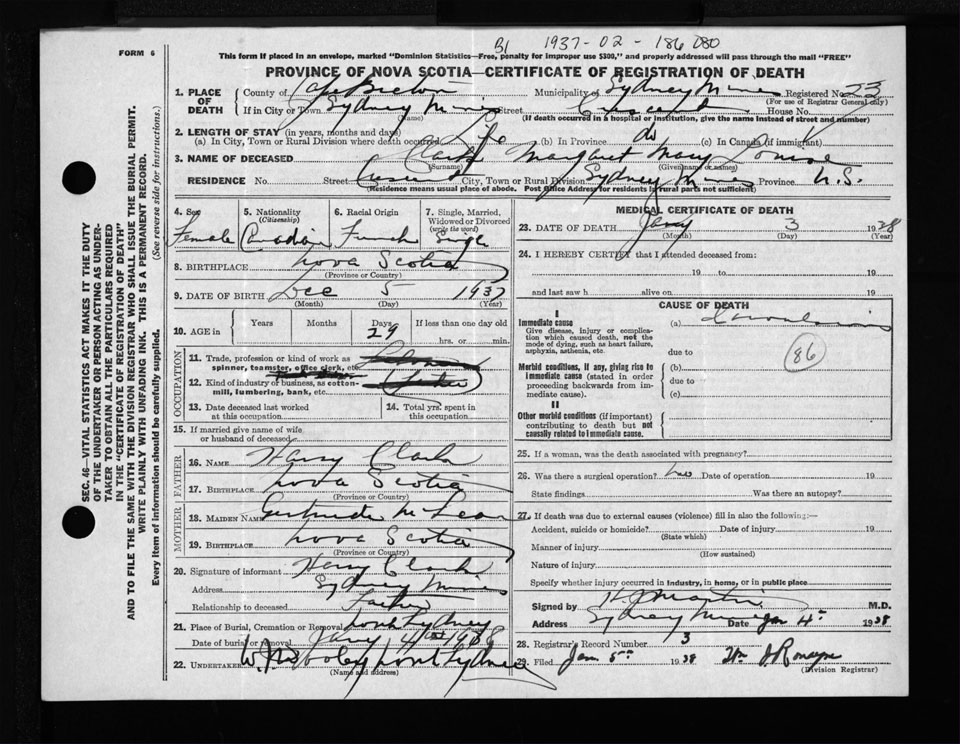 B1 1937-02-186080
FORM 6
This form if placed in an envelope, marked "Dominion Statistics—Free, penalty for improper use $300," and properly addressed will pass through the mail "FREE"
PROVINCE OF NOVA SCOTIA—CERTIFICATE OF REGISTRATION OF DEATH
1. PLACE OF DEATH
County of Cape Breton Municipality of Sydney Mines Registered No.
(For use of Registrar General only)
If in City or Town Sydney Mines Street Crescent House No.
(Name) (If death occurred in a hospital or institution, give the name instead of street and number)
2. LENGTH OF STAY (in years, months and days)
(a) In City, Town or Rural Division where death occurred Life (b) In Province do (c) In Canada (if immigrant)
3. NAME OF DECEASED Clark Margaret Mary Louise
(Surname) (Given name or names)
RESIDENCE No. Street Crescent City, Town or Rural Division Sydney Mines Province N.S.
(Residence means usual place of abode. Post Office Address for residents in rural parts not sufficient)
4. Sex
Female
5. Nationality
(Citizenship)
Canadian
6. Racial Origin
French
7. Single, Married, Widowed or Divorced
(write the word)
Single
8. BIRTHPLACE Nova Scotia
(Province or Country)
9. DATE OF BIRTH Dec 5 1937
(Month) (Day) (Year)
10. AGE in
Years Months Days If less than one day old
29 hrs. or min.
OCCUPATION
11. Trade, profession or kind of work as
spinner, teamster, office clerk, etc.
12. Kind of industry or business, as cotton-
mill, lumbering, bank, etc.
13. Date deceased last worked
at this occupation
14. Total yrs. spent in
this occupation
15. If married give name of wife
or husband of deceased
FATHER
16. NAME Harry Clark
17. BIRTHPLACE Nova Scotia
(Province or Country)
MOTHER
18. MAIDEN NAME Gertrude McLean
19. BIRTHPLACE Nova Scotia
(Province or Country)
20. Signature of informant Harry Clark
Address Sydney Mines
Relationship to deceased Father
21. Place of Burial, Cremation or Removal North Sydney
Date of burial or removal Jany 4th 1938
22. UNDERTAKER North Sydney
(Name and address)
MEDICAL CERTIFICATE OF DEATH
23. DATE OF DEATH Jany 3 1938
(Month) (Day) (Year)
24. I HEREBY CERTIFY that I attended deceased from:
19 to 19
and last saw h alive on 19
CAUSE OF DEATH
I
Immediate cause (a)
Give disease, injury or complica-
tion which caused death, not the
mode of dying, such as heart failure,
asphyxia, asthenia, etc. due to
86
Morbid conditions, if any, giving rise to (b)
immediate cause (stated in order due to
proceeding backwards from im-
mediate cause). (c)
II
Other morbid conditions (if important)
contributing to death but not
causally related to immediate cause.
25. If a woman, was the death associated with pregnancy?
26. Was there a surgical operation? no Date of operation 19
State findings Was there an autopsy?
27. If death was due to external causes (violence) fill in also the following:—
Accident, suicide or homicide? Date of injury 19
(State which)
Manner of injury
(How sustained)
Nature of injury
Specify whether injury occurred in industry, in home, or in public place
Signed by M.D.
Address Sydney Mines Date Jan 4th 1938
28. Registrar's Record Number 3
29. Filed Jan 5th 1938
(Division Registrar)
SEC. 46—VITAL STATISTICS ACT MAKES IT THE DUTY
OF THE UNDERTAKER OR PERSON ACTING AS UNDER-
TAKER TO OBTAIN ALL THE PARTICULARS REQUIRED
IN THE "CERTIFICATE OF REGISTRATION OF DEATH"
AND TO FILE THE SAME WITH THE DIVISION REGISTRAR WHO SHALL ISSUE THE BURIAL PERMIT.
WRITE PLAINLY WITH UNFADING INK. THIS IS A PERMANENT RECORD.
Every item of information should be carefully supplied. (See reverse side for instructions.)